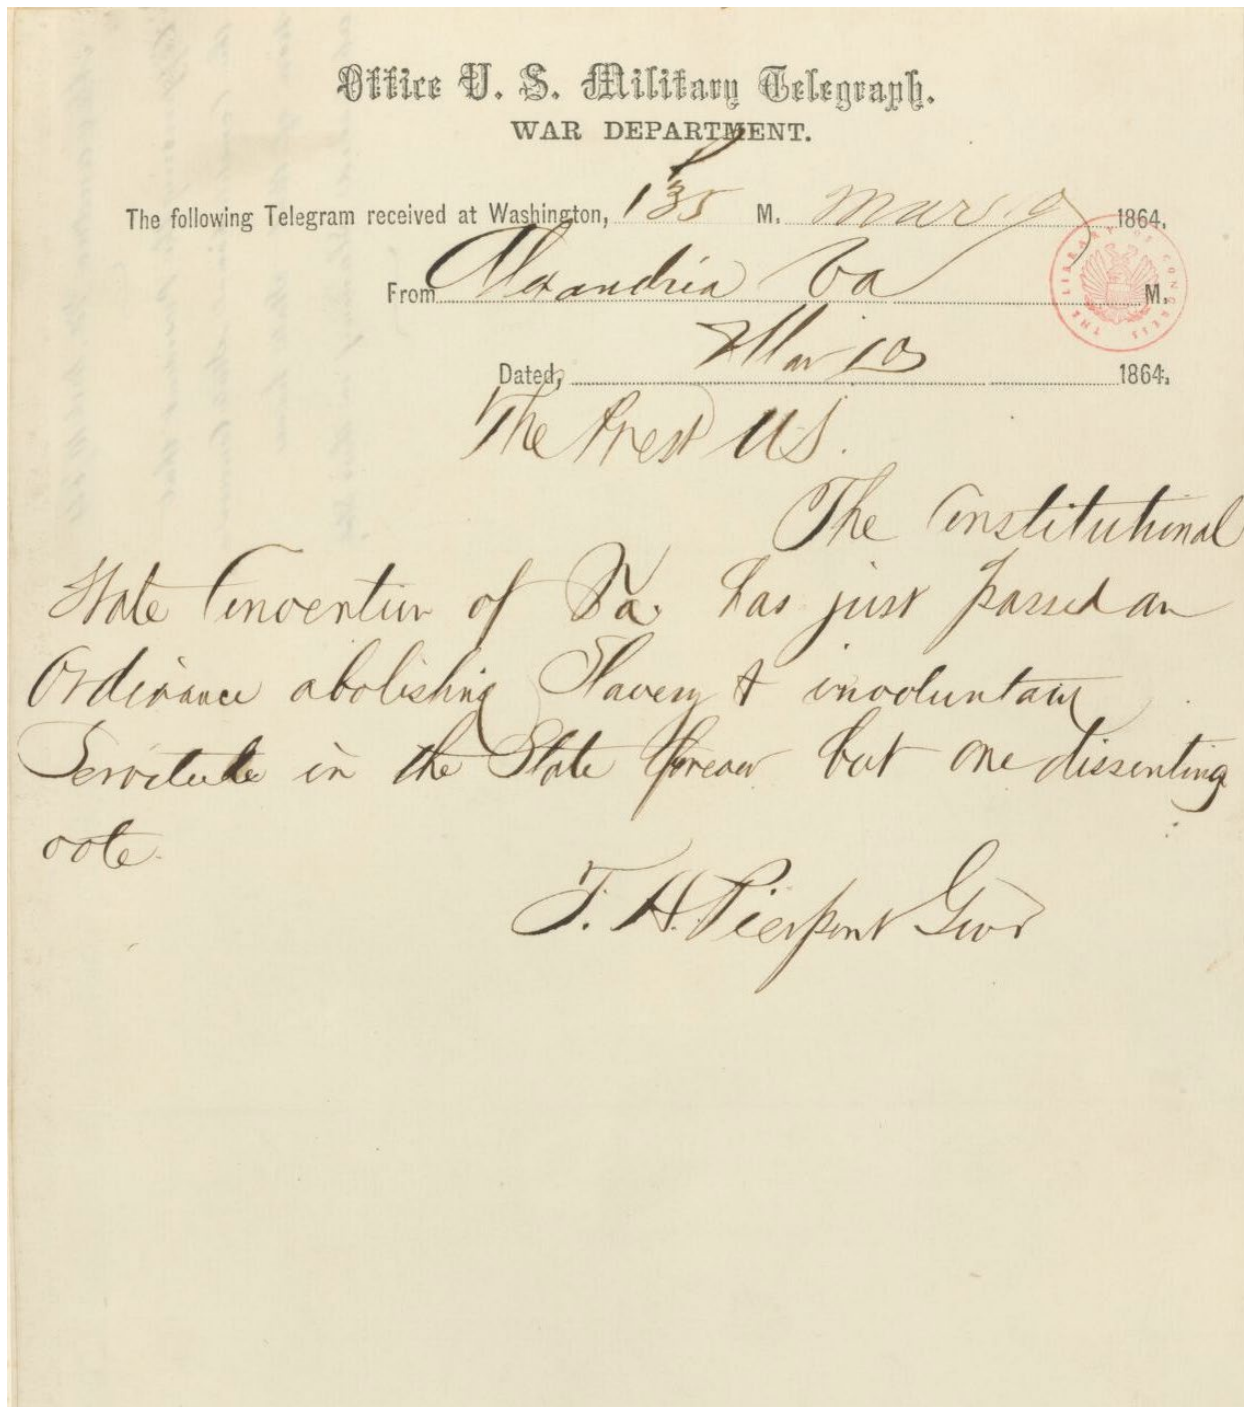 Office U. S. Military Telegraph.
WAR DEPARTMENT.
The following Telegram received at Washington, 135 P M. Mar. 1864.
From Alexandria Va M.
Dated, Mar 10 1864.
The Prest US.
The Constitutional
State Convention of Va. has just passed an
Ordinance abolishing Slavery & involuntary
Servitude in the State forever but one dissenting
vote.
F. H. Pierpont Govr
THE LIBRARY OF CONGRESS